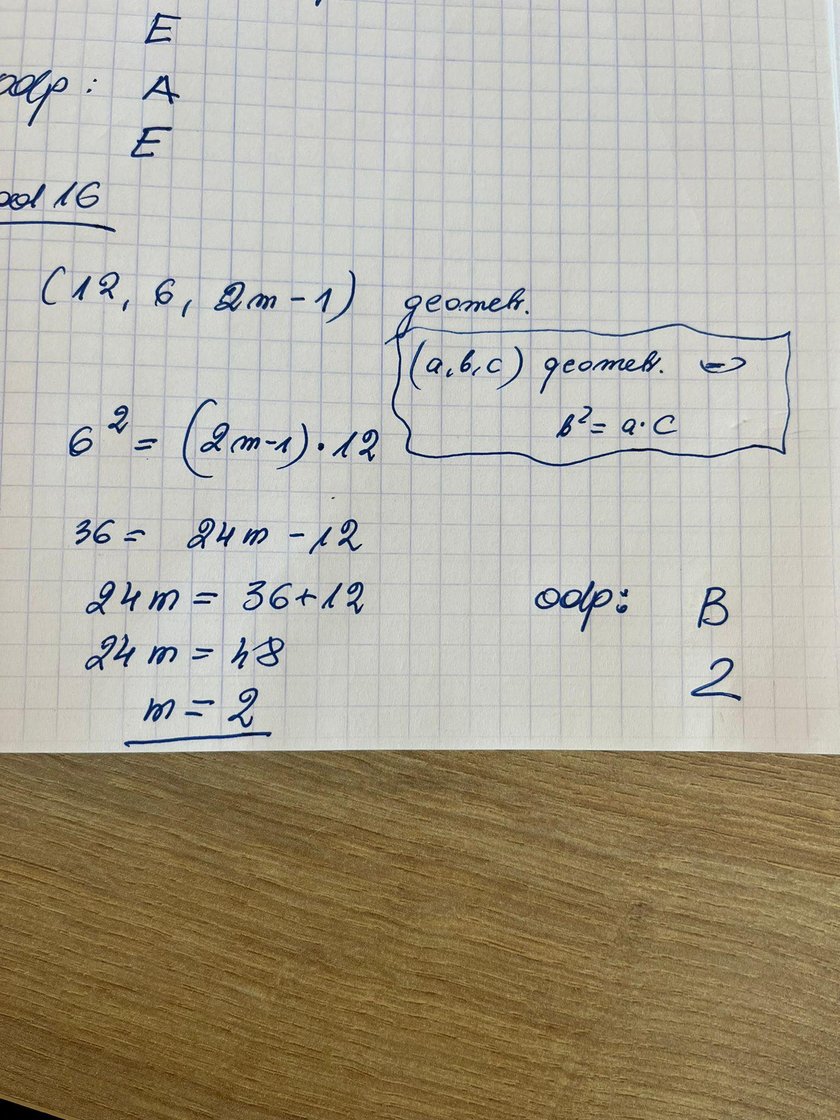 E
odp: A
E
zad 16
(12, 6, 2m-1) geometr.
(a,b,c) geometr. <=>
b²= a·c
6² = (2m-1)·12
36 = 24m -12
24m = 36+12
24m = 48
m = 2
odp: B
2